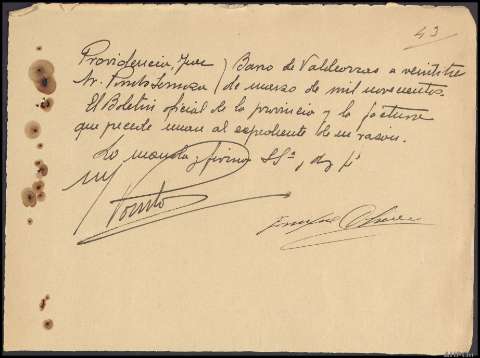 43
Providencia Juez } Barco de Valdeorras a veintitre
Sr. } de marzo de mil novecientos.
El Boletin oficial de la provincia y la factura
que precede unanse al expediente de su razon.
Lo manda y firma SSª, doy fé